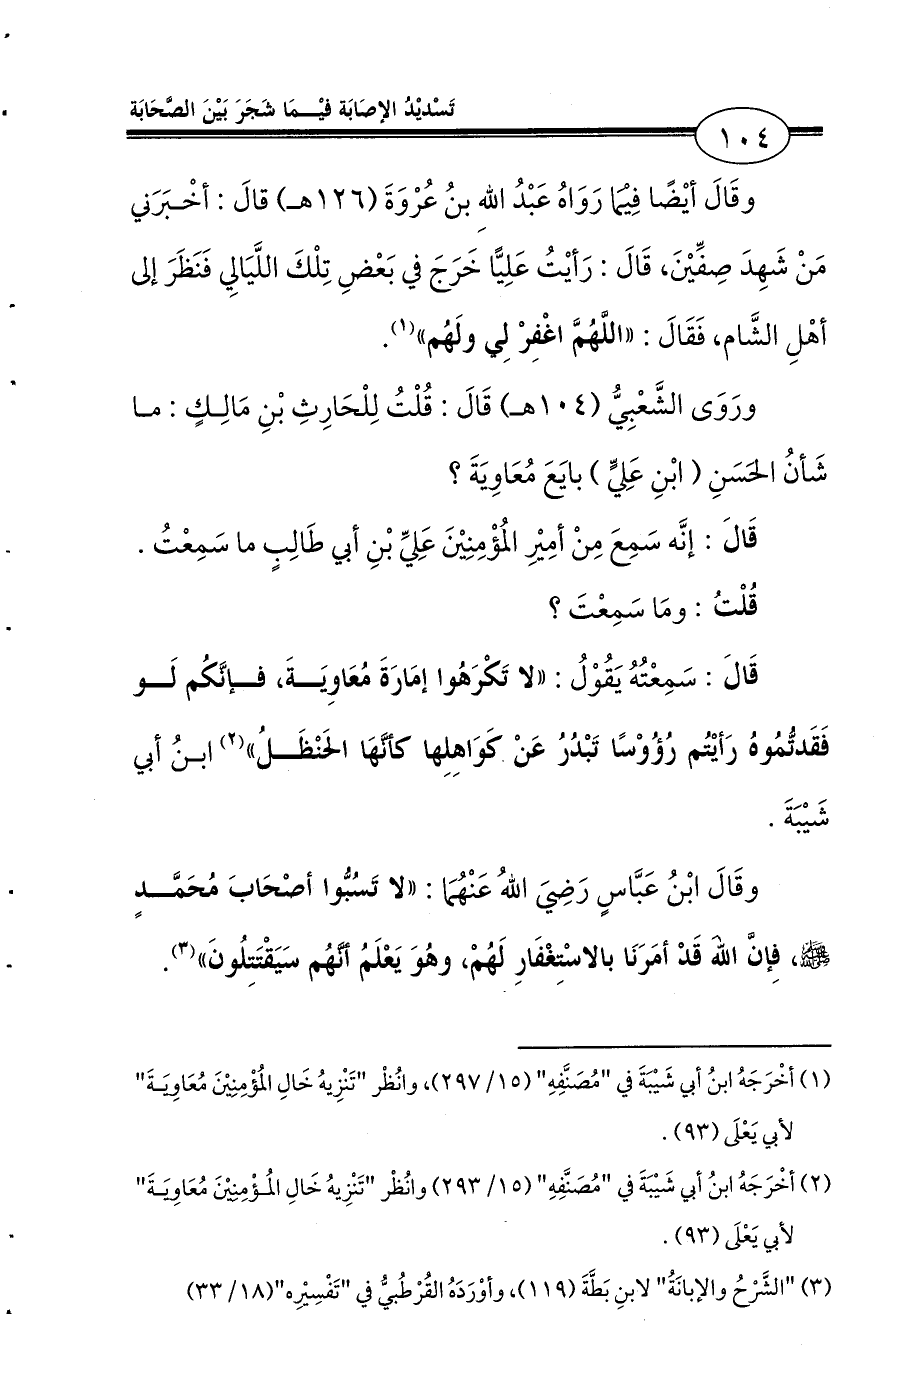 تَسْدِيْدُ الإصَابَة فيْـمَا شَجَرَ بَيْنَ الصَّحَابَة
١٠٤
وقَالَ أيْضًا فِيْمَا رَوَاهُ عَبْدُ الله بنُ عُرْوَةَ (١٢٦هـ) قالَ : أخْبَرَني
مَنْ شَهِدَ صِفِّيْنَ، قَالَ : رَأيْتُ عَلِيًّا خَرَجَ في بَعْضِ تِلْكَ اللَّيَالي فَنَظَرَ إلى
أهْلِ الشَّام، فَقَالَ : «اللَّهُمَّ اغْفِرْ لِي ولَهُم»(١).
ورَوَى الشَّعْبِيُّ (١٠٤هـ) قَالَ : قُلْتُ لِلْحَارِثِ بْنِ مَالِـكٍ : مـا
شَأنُ الحَسَنِ ( ابْنِ عَلِيٍّ ) بايَعَ مُعَاوِيَةَ ؟
قَالَ : إنَّه سَمِعَ مِنْ أمِيْرِ المُؤْمِنِيْنَ عَلِيِّ بْنِ أبي طَالِبٍ ما سَمِعْتُ .
قُلْتُ : ومَا سَمِعْتَ ؟
قَالَ : سَمِعْتُهُ يَقُوْلُ : «لا تَكْرَهُوا إمَارَةَ مُعَاوِيَـةَ، فـإنَّكُم لَـو
فَقَدتُّمُوهُ رَأيْتُم رُؤُوْسًا تَبْدُرُ عَنْ كَوَاهِلِها كأنَّهَا الحَنْظَـلُ»(٢) ابـنُ أبي
شَيْبَةَ .
وقَالَ ابْنُ عَبَّاسٍ رَضِيَ اللهُ عَنْهُمَا : «لا تَسُبُّوا أصْحَابَ مُحَمَّـدٍ
ﷺ، فإنَّ اللهَ قَدْ أمَرَنَا بالاسْتِغْفَارِ لَهُمْ، وهُوَ يَعْلَمُ أنَّهُم سَيَقْتَتِلُونَ»(٣).
(١) أخْرَجَهُ ابنُ أبي شَيْبَةَ في "مُصَنَّفِهِ" (١٥/ ٢٩٧)، وانْظُر "تَنْزِيهُ خَالِ المُؤْمِنِيْنَ مُعَاوِيَـةَ"
لأبي يَعْلَى (٩٣) .
(٢) أخْرَجَهُ ابنُ أبي شَيْبَةَ في "مُصَنَّفِهِ" (١٥/ ٢٩٣) وانُظُرْ "تَنْزِيهُ خَالِ المُـؤْمِنِيْنَ مُعَاوِيَـةَ"
لأبي يَعْلَى (٩٣) .
(٣) "الشَّرْحُ والإبانَةُ" لابنِ بَطَّةَ (١١٩)، وأوْرَدَهُ القُرْطُبيُّ في "تَفْسِيْرِه"(١٨/ ٣٣)